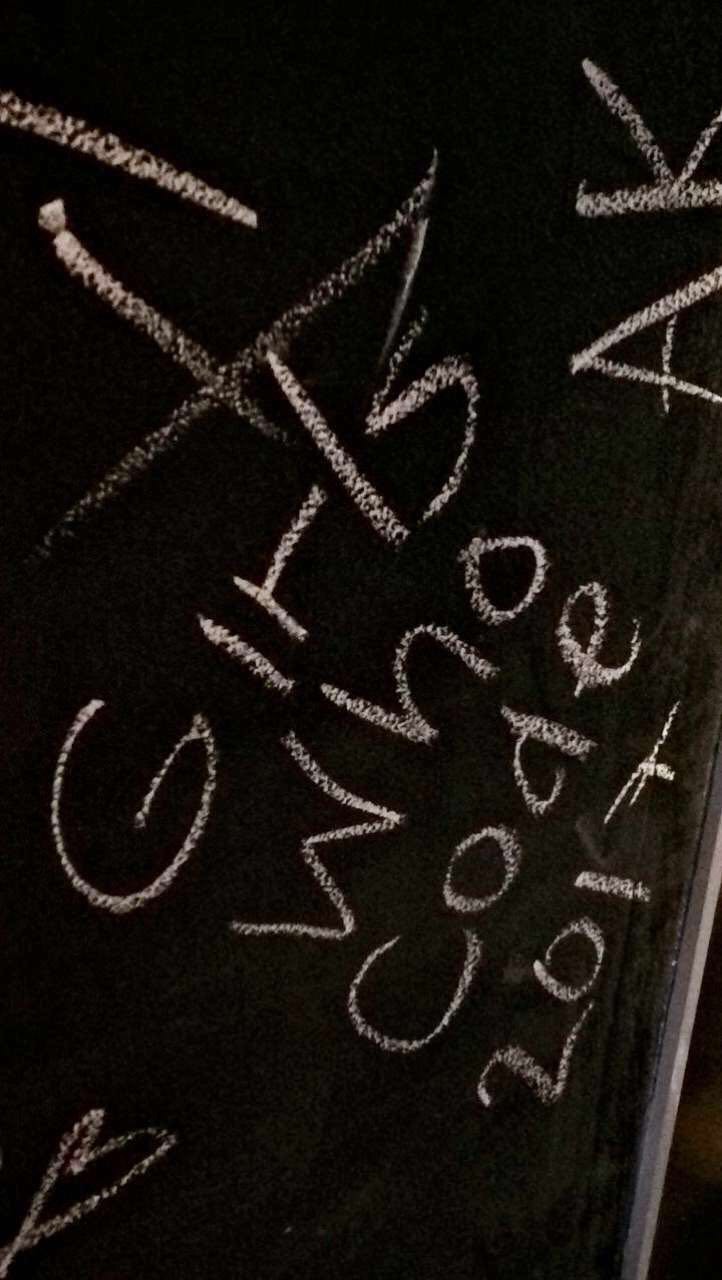 Girls
Who
Code
2017
AK